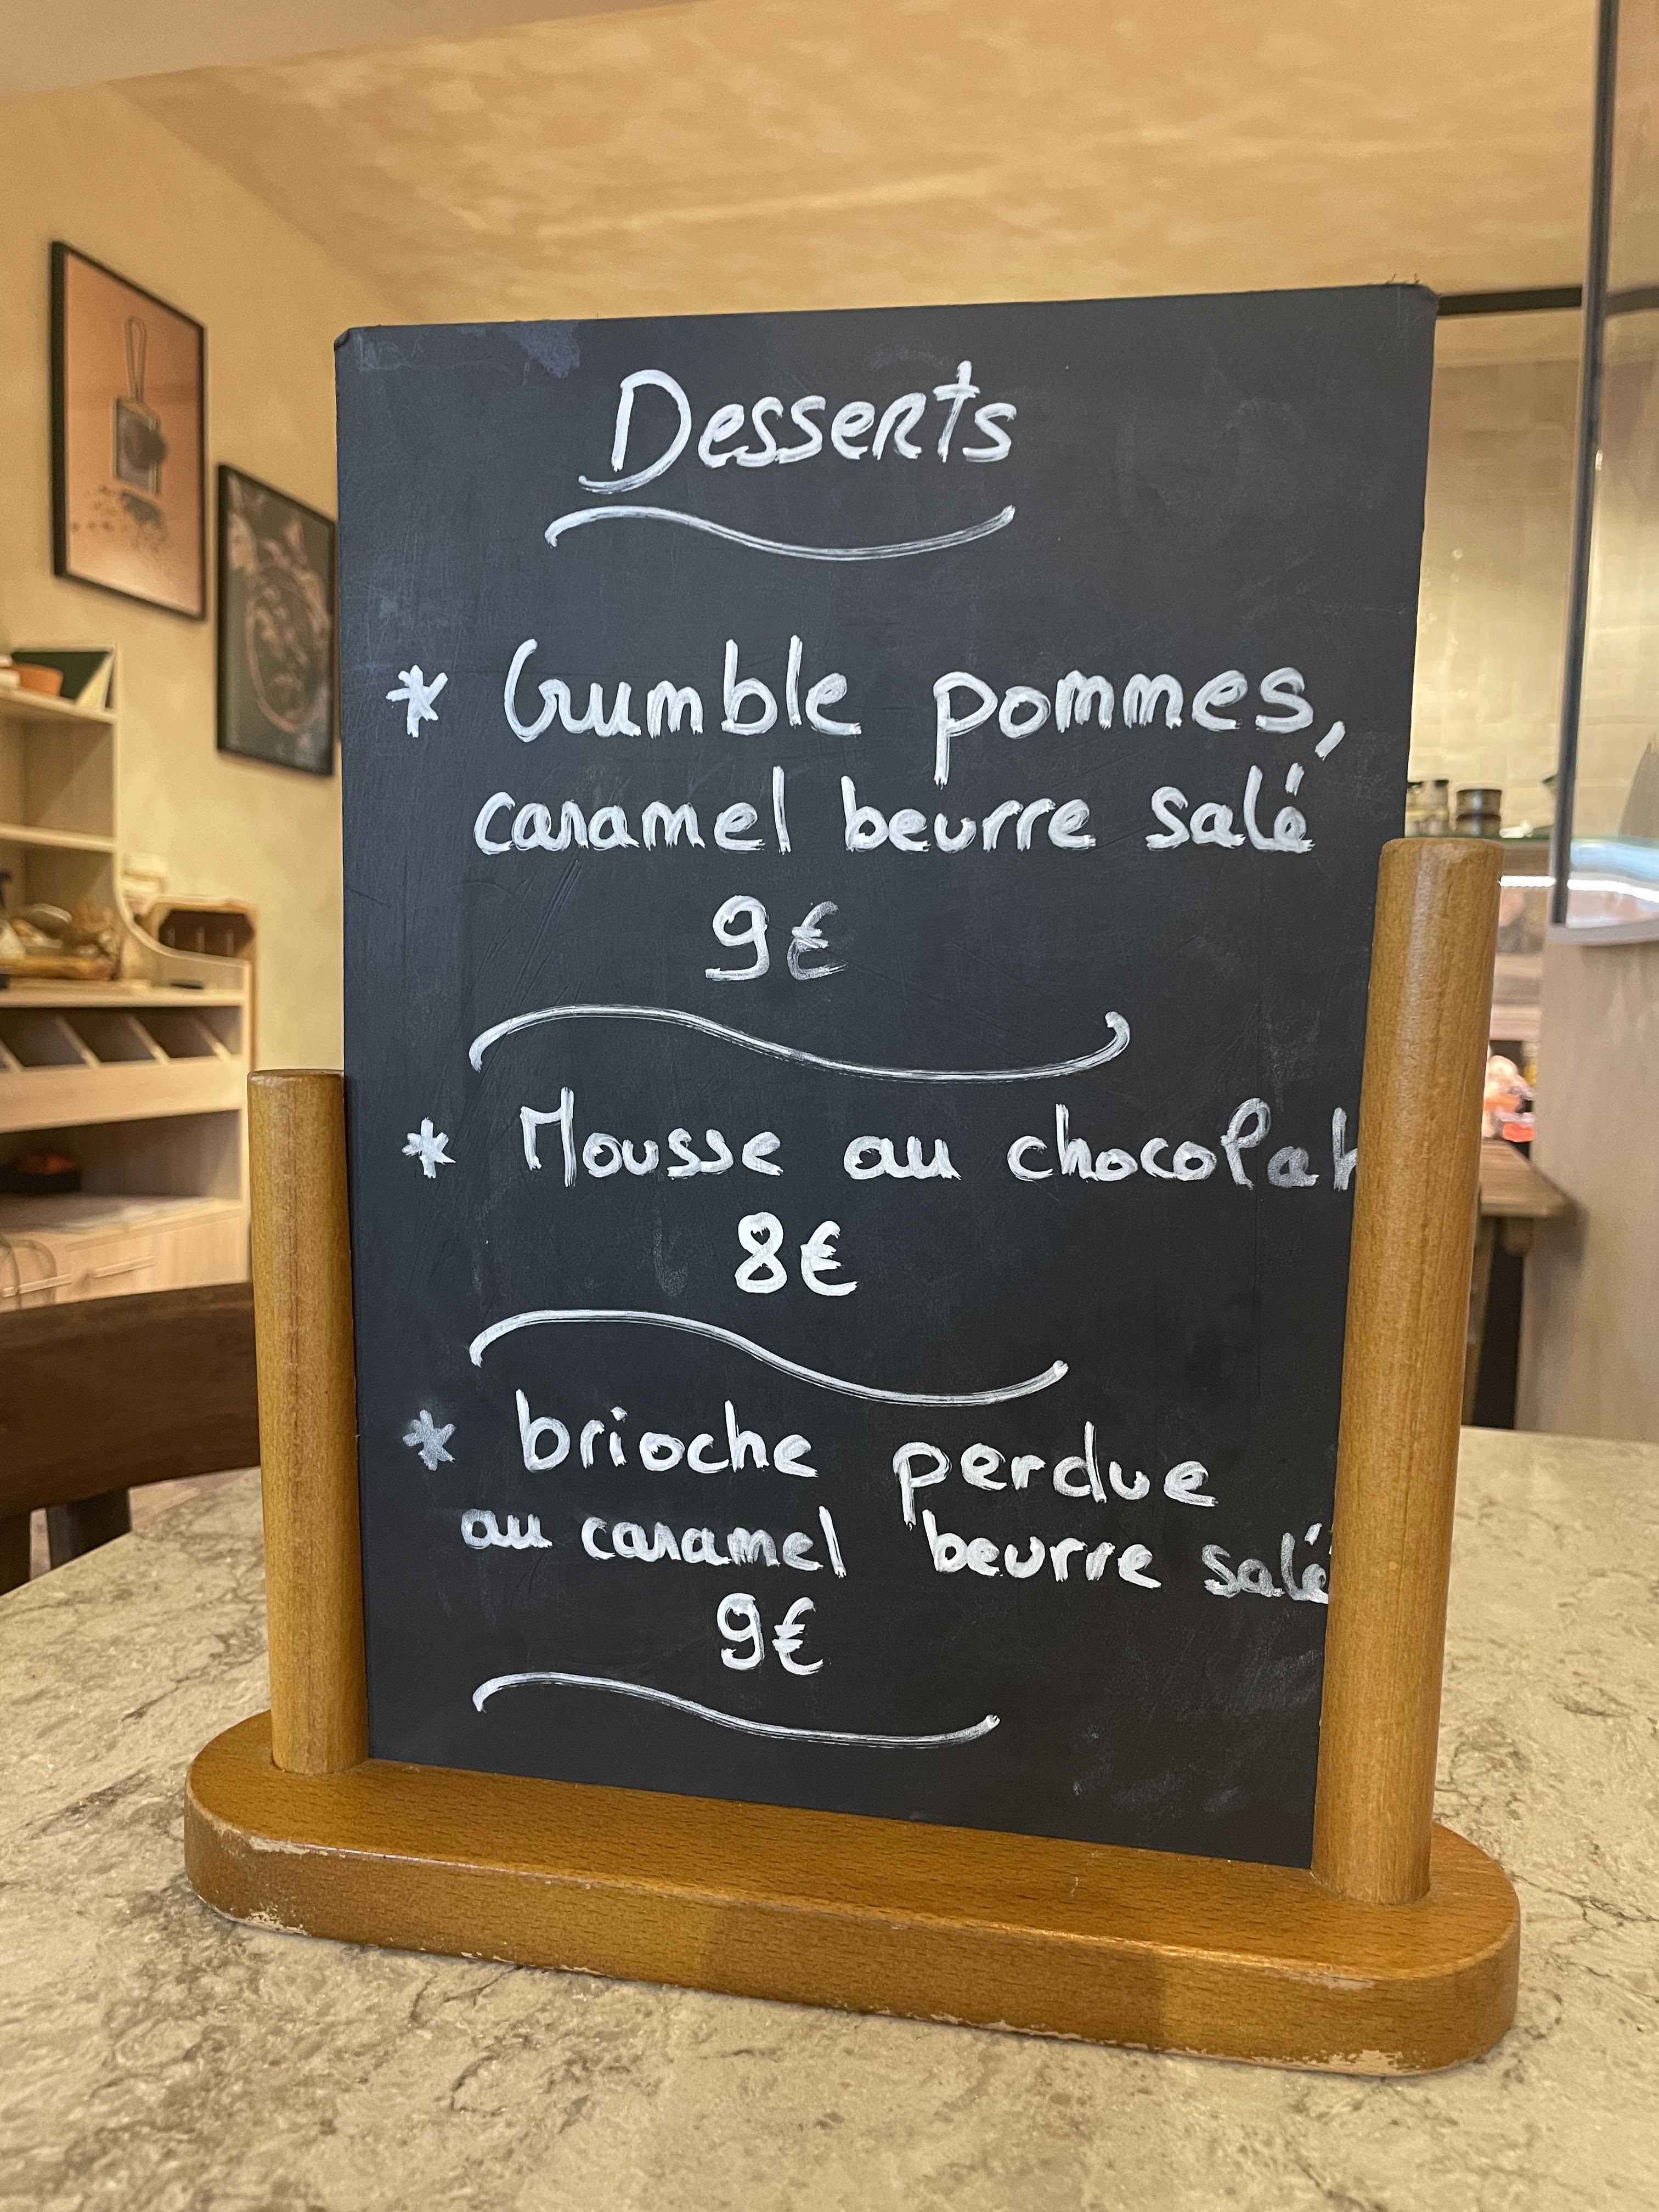 Desserts
* Crumble pommes,
caramel beurre salé
9€
* Mousse au chocolat
8€
* brioche perdue
au caramel beurre salé
9€